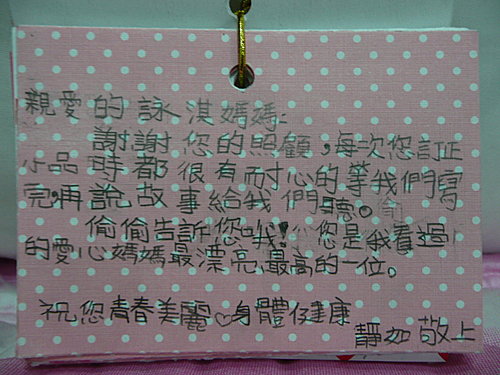 親愛的詠淇媽媽:
謝謝您的照顧,每次您訂正
小品時都很有耐心的等我們寫
完,再說故事給我們聽。
偷偷告訴您哦!您是我看過
的愛心媽媽最漂亮、最高的一位。
祝您青春美麗♡身體健康
靜如敬上